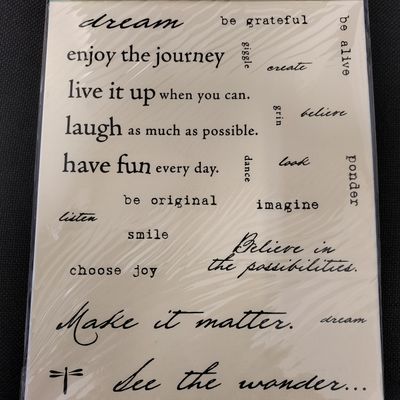 dream
be grateful
be alive
enjoy the journey
giggle
create
live it up when you can.
grin
believe
laugh as much as possible.
have fun every day.
dance
look
ponder
be original
imagine
listen
smile
Believe in
the possibilities.
choose joy
Make it matter.
dream
See the wonder...